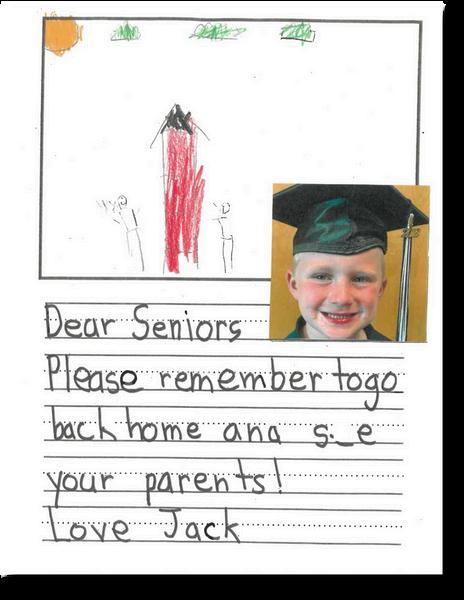 Dear Seniors
Please remember togo
back home ana
your parents!
Love Jack